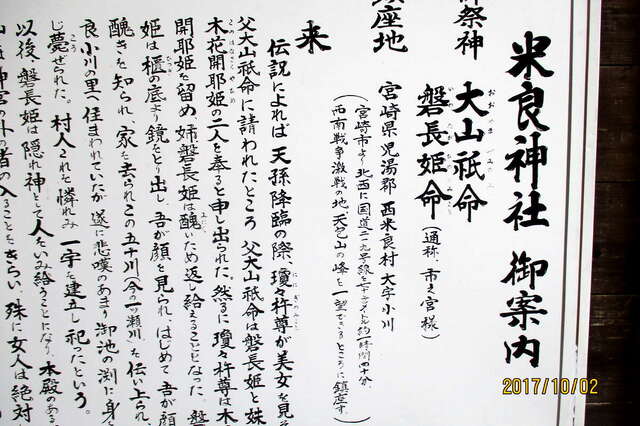 米良神社 御案内
御祭神 大山祇命
磐長姫命 (通称、市之宮様)
鎮座地 宮崎県 児湯郡 西米良村 大字小川
西南戦争激戦の地、天包山の峰を一望できるところに鎮座す。)
来
伝説によれば 天孫降臨の際、瓊々杵尊が美女を見そ
父大山祇命に請われたところ 父大山祇命は磐長姫と妹
木花開耶姫の二人を奉ると申し出られた。然るに瓊々杵尊は木
開耶姫を留め 姉磐長姫は醜いため返し給えることになった。磐
姫は櫃の底より鏡をとり出し、吾が顔を見られ、はじめて 吾が顔
醜きを知られ、家を去られこの五十川(今の一ツ瀬川)を伝い上られ、
良小川の里へ住まわれていたが遂に悲嘆のあまり御池の渕に身
じ薨ぜられた。村人これを憐れみ 一宇を建立し祀ったという。
以後、磐長姫は隠れ神として人をいみ給うことになり、本殿のある
の外の者の入ることをきらい、殊に女人は絶対
2017/10/02